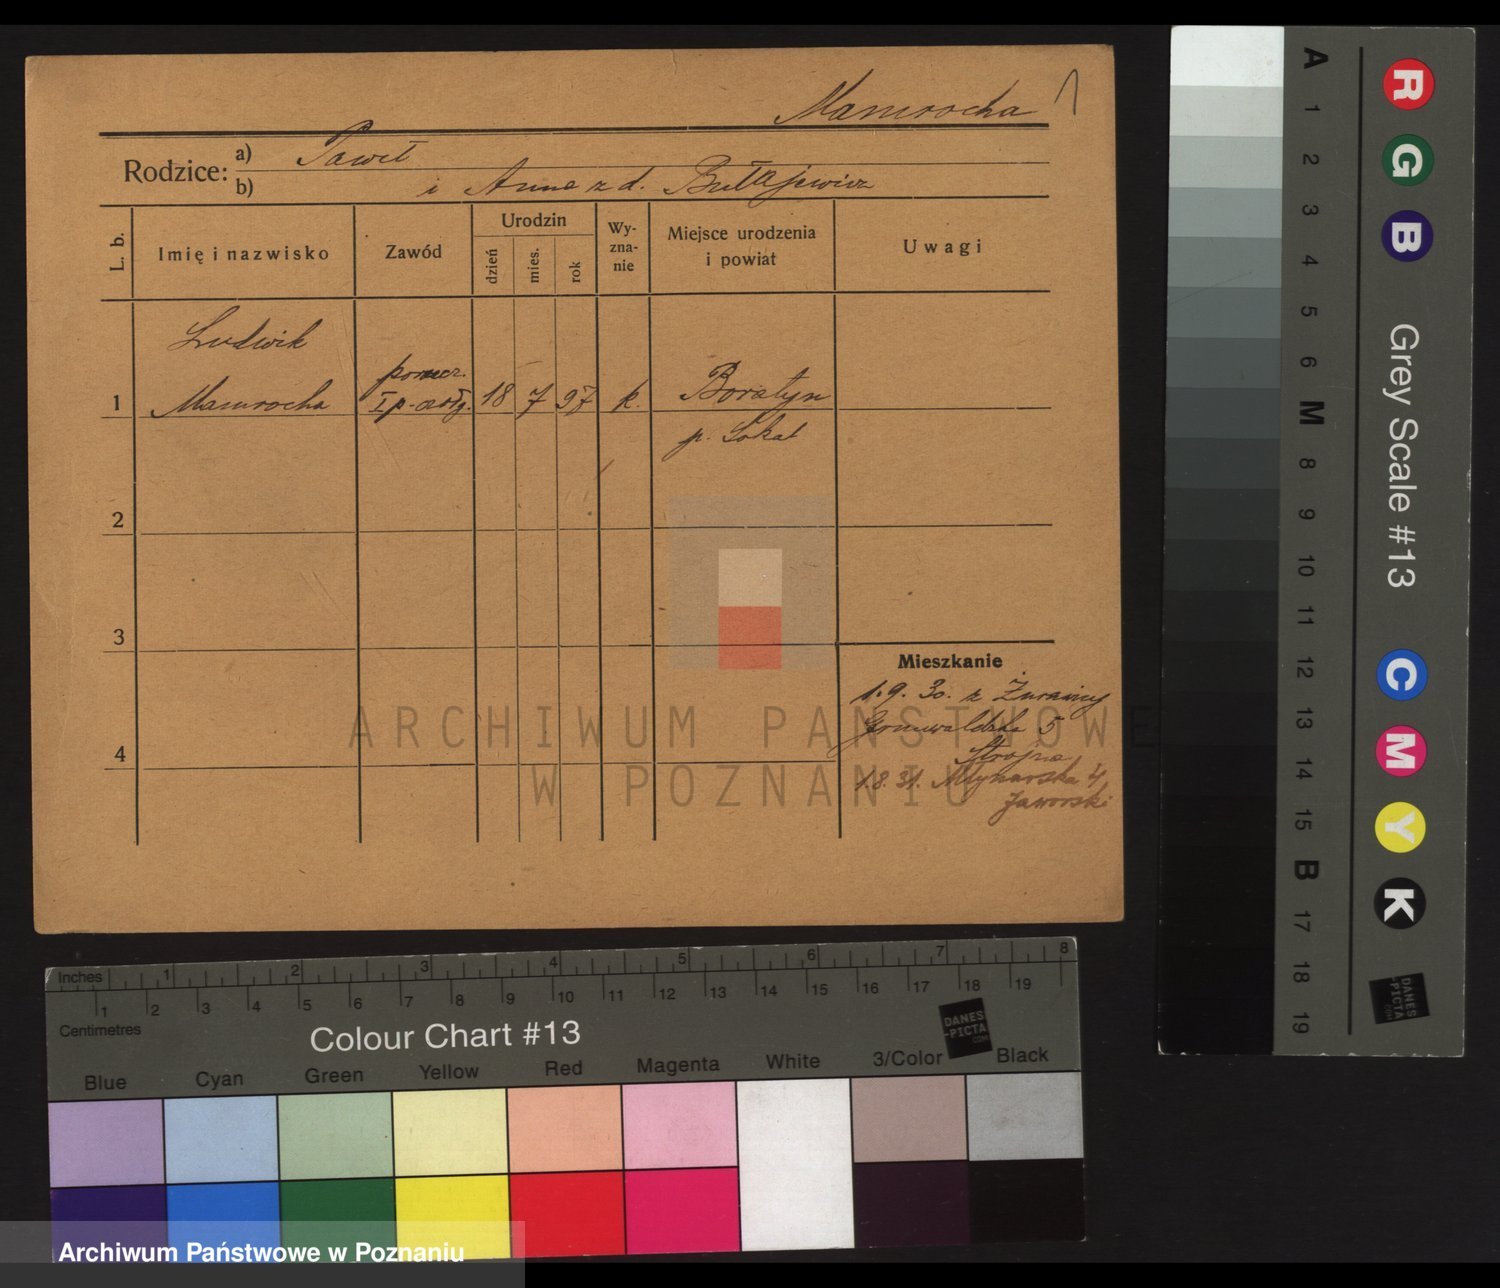 Mamrocha
Rodzice: a) Paweł
b) i Anna z d. Bułajewicz
L. b.
Imię i nazwisko
Zawód
Urodzin
dzień
mies.
rok
Wy-
zna-
nie
Miejsce urodzenia
i powiat
Uwagi
Ludwik
1 Mamrocha
18 7 97 k. Boratyn
p. Sokal
2
3
4
Mieszkanie
1.9.30. z Żurawicy
Grunwaldzka 5
Strojna
1.8.31. Młynarska 4
Jaworski
ARCHIWUM PAŃSTWOWE
W POZNANIU
Inches 1 2 3 4 5 6 7 8
1 2 3 4 5 6 7 8 9 10 11 12 13 14 15 16 17 18 19
Centimetres
Colour Chart #13
DANES
-PICTA
.COM
Blue Cyan Green Yellow Red Magenta White 3/Color Black
Archiwum Państwowe w Poznaniu
A 1 2 3 4 5 6 M 8 9 10 11 12 13 14 15 B 17 18 19
R G B
Grey Scale #13
C M Y K
DANES
-PICTA
.COM